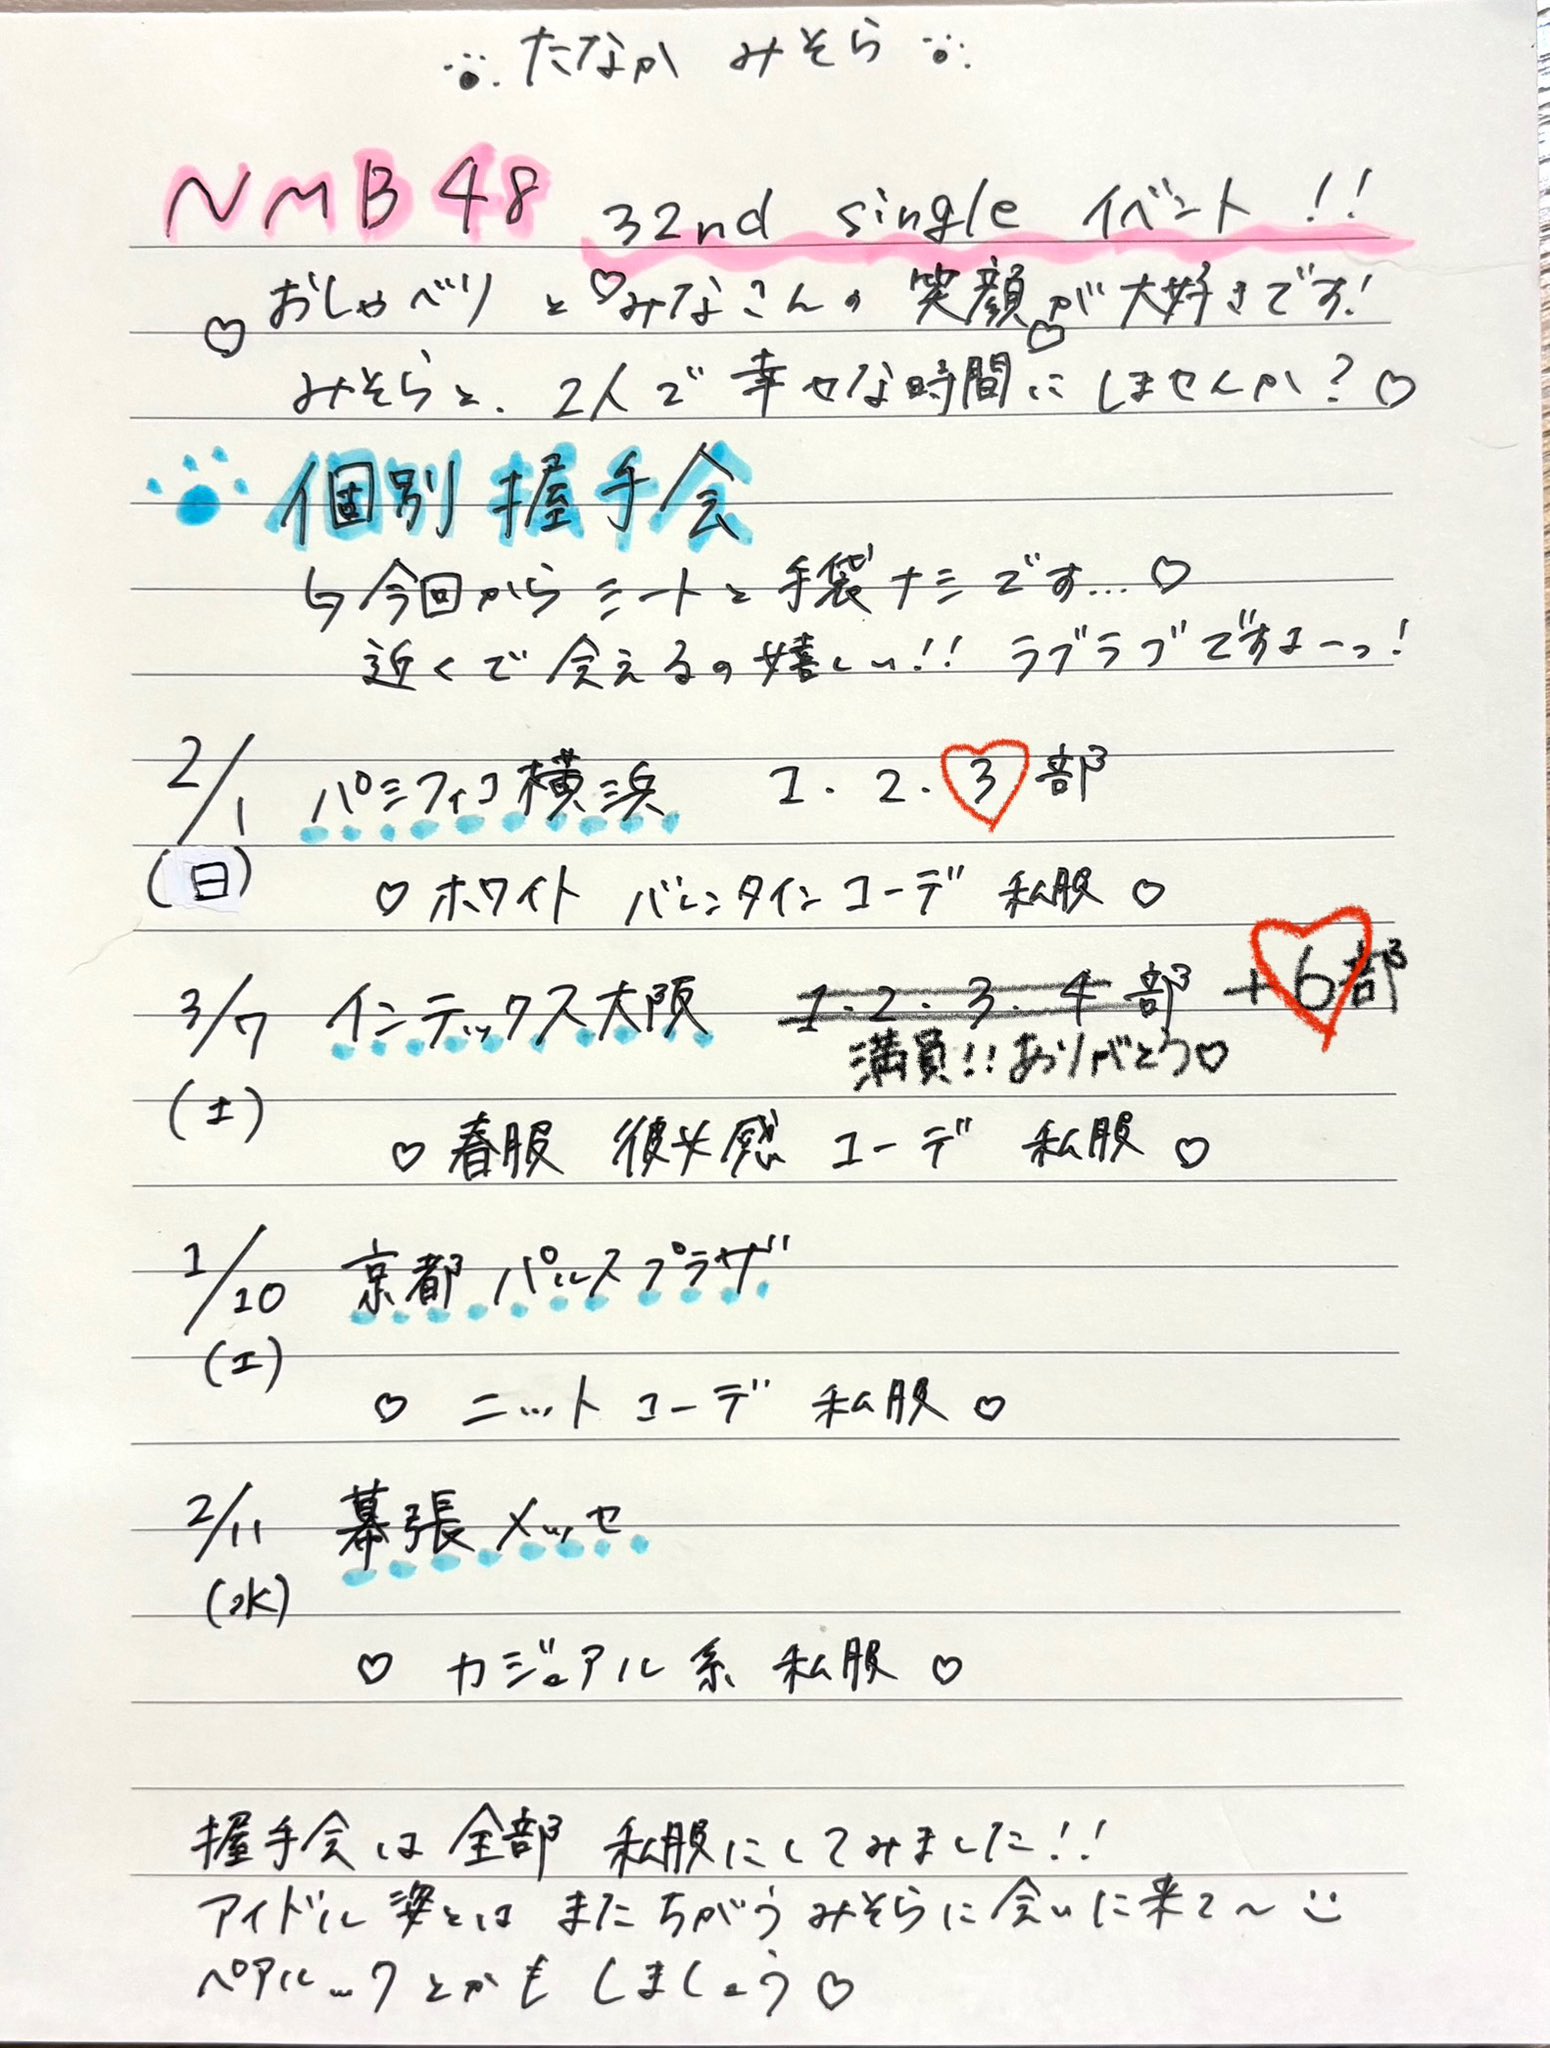 たなか みそら
NMB48 32nd single イベント!!
おしゃべりと♡みなさんの笑顔が大好きです!
♡みそらと、2人で幸せな時間♡にしませんか?♡
個別握手会
↳今回からシートと手袋ナシです...♡
近くで会えるの嬉しい!! ラブラブですよーっ!
2/1 パシフィコ横浜 1.2.3部
(日)
♡ホワイト バレンタインコーデ 私服♡
3/7 インテックス大阪 1.2.3.4部 +6部
満員!!ありがとう♡
(土)
♡春服 彼女感 コーデ 私服♡
1/10 京都 パルスプラザ
(土)
♡ ニットコーデ 私服♡
2/11 幕張メッセ
(水)
♡ カジュアル系 私服♡
握手会は全部 私服にしてみました!!
アイドル姿とは またちがうみそらに会いに来て〜
ペアルックとかも しましょう♡